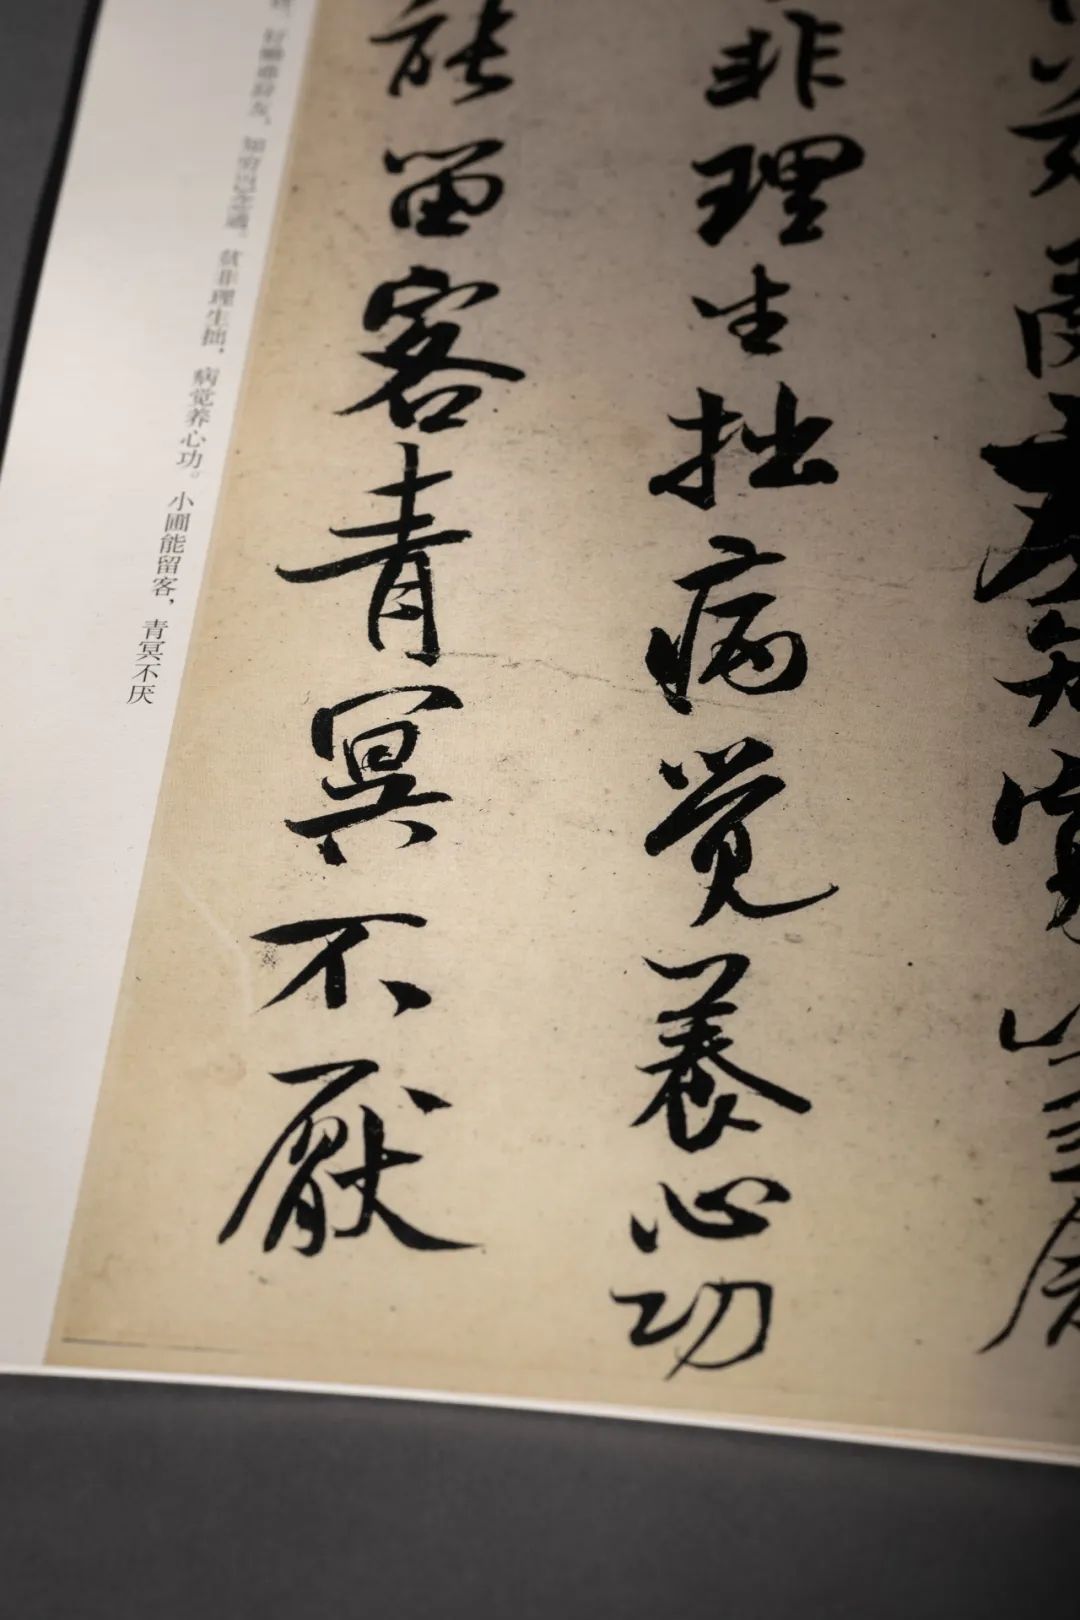 友知窮
非理生拙病觉養心功
能留客青冥不厭
好懒难辞友，知穷岂念通。贫非理生拙，病觉养心功。小圃能留客，青冥不厌